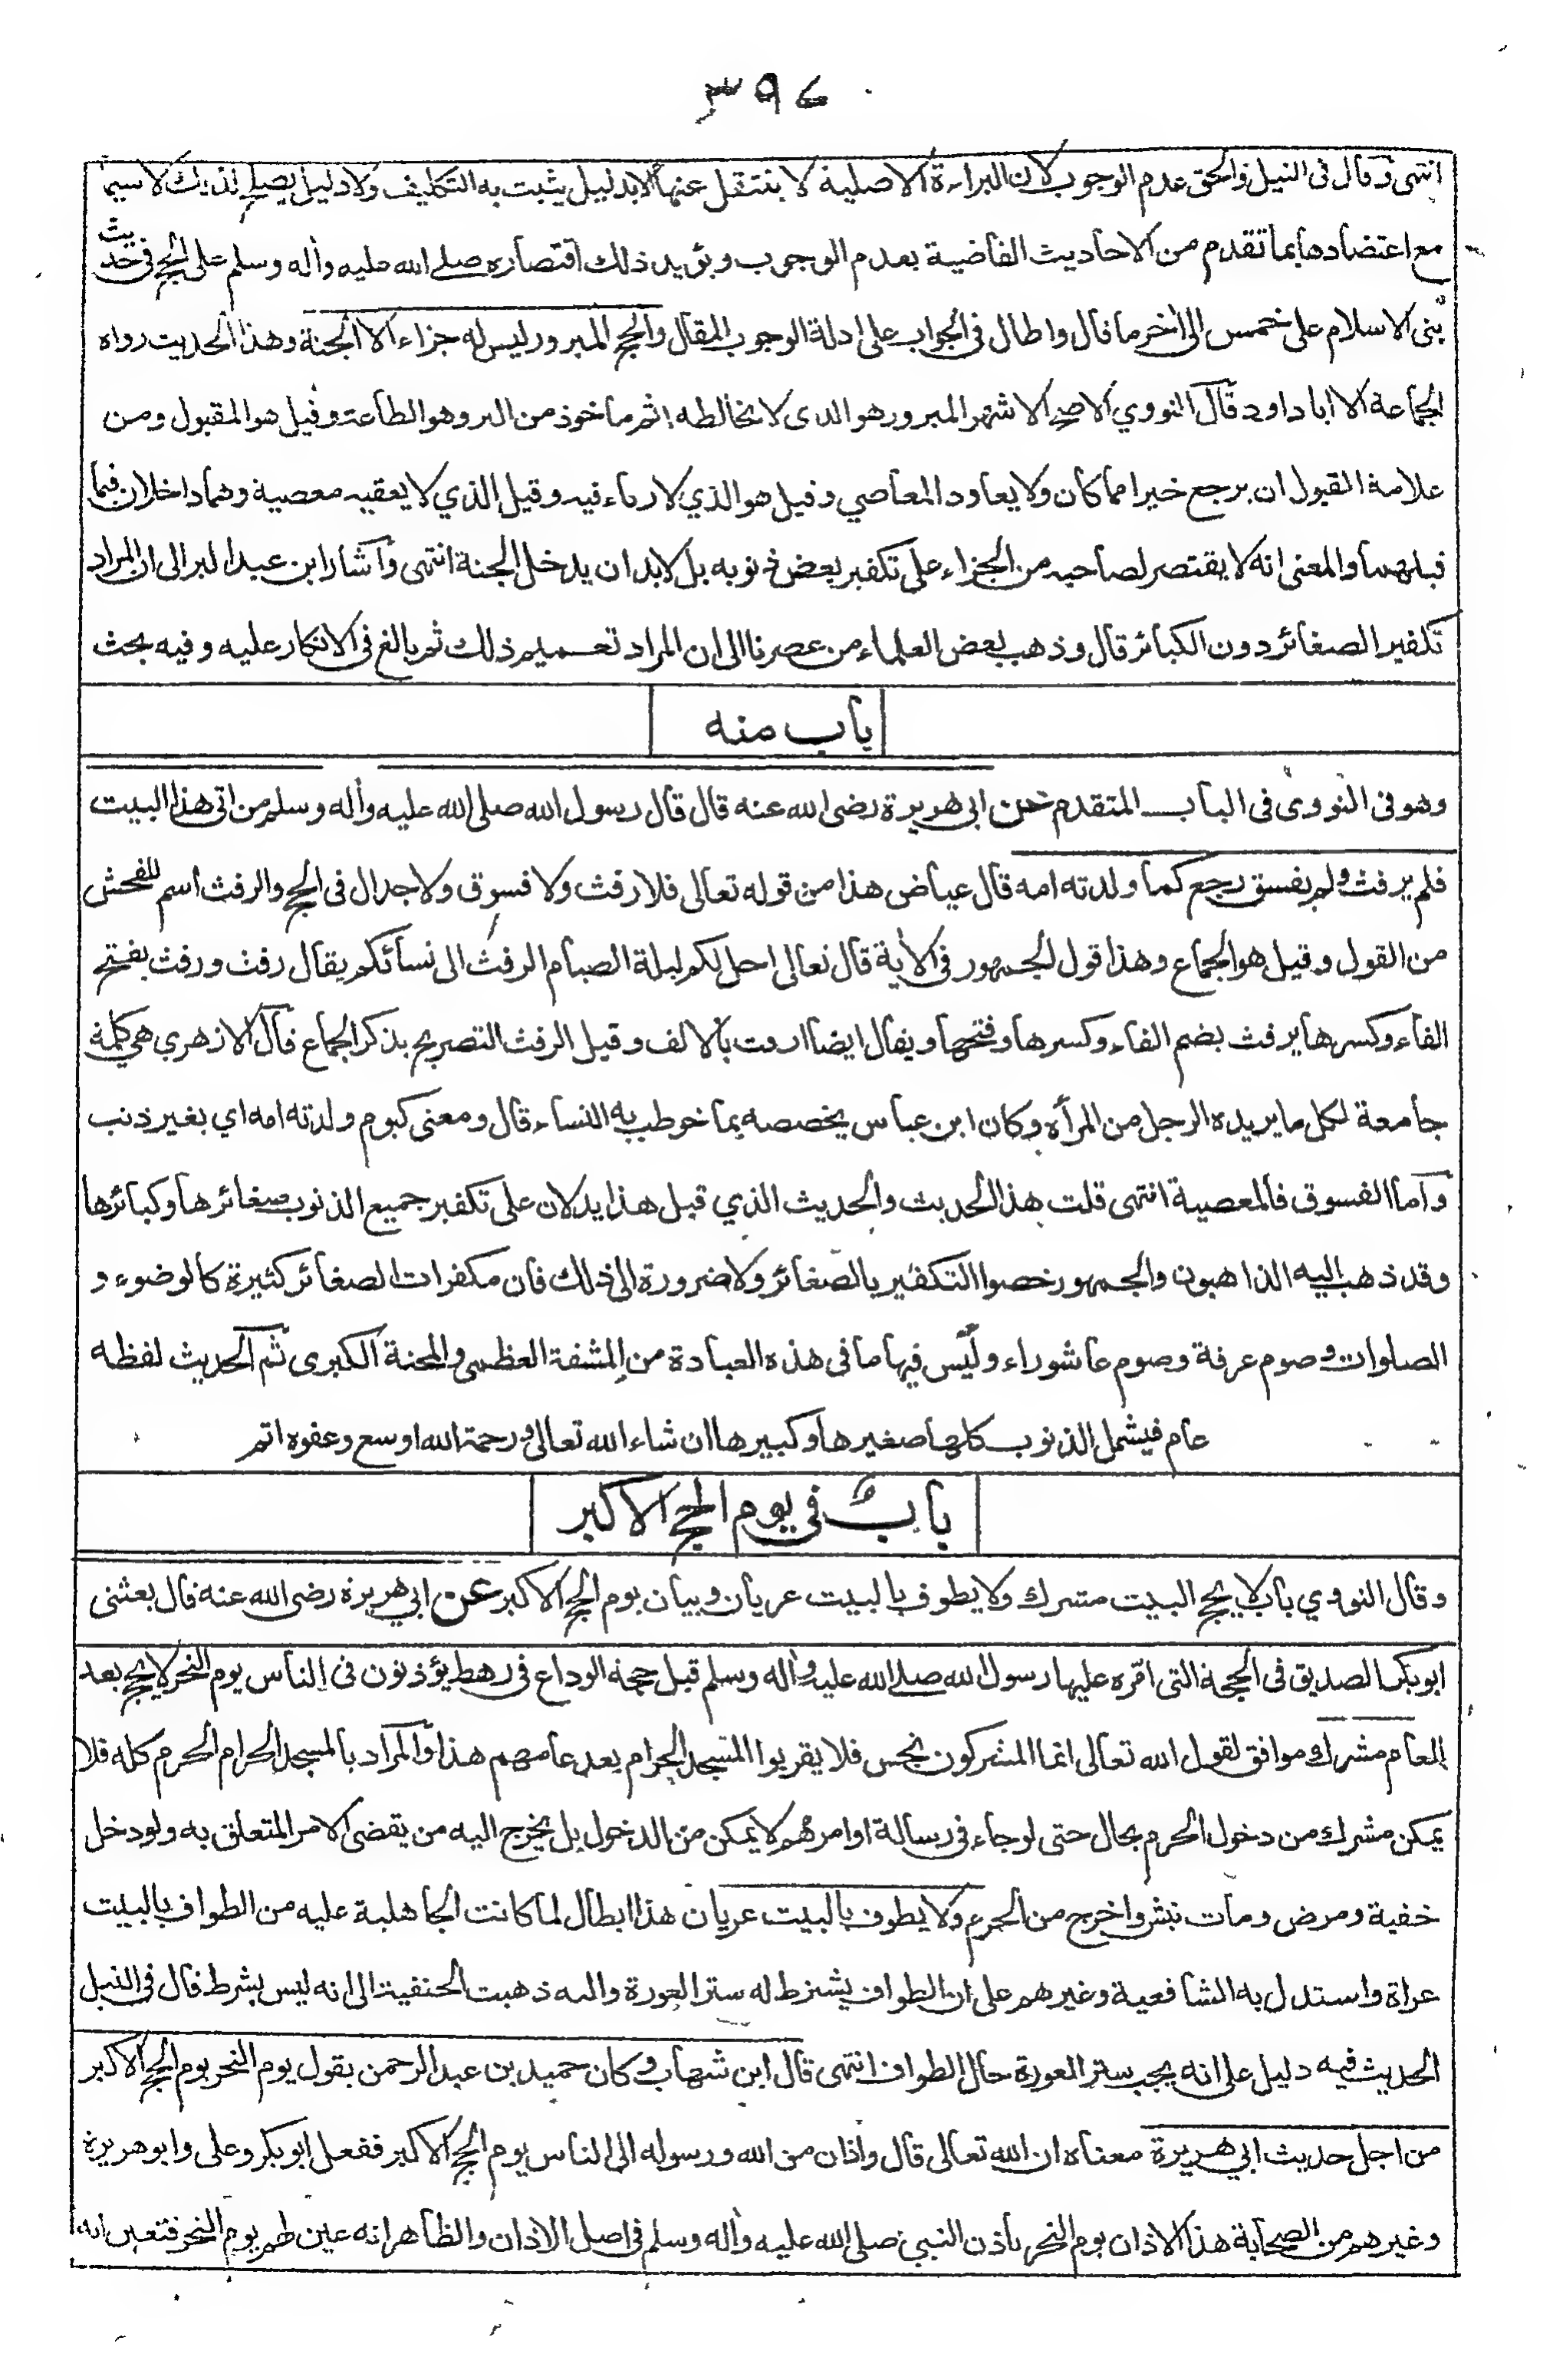 ۳۹۶
انتهى وقال فى النيل والحق عدم الوجوب لان البراءة الاصلية لا ينتقل عنها الا بدليل يثبت به التكليف ولا دليل يصلح لذلك لا سيما
مع اعتضادها بما تقدم من الاحاديث القاضية بعدم الوجوب ويؤيد ذلك اقتصاره صلے الله عليه واله وسلم على الحج فى حديث
بنى الاسلام على خمس الى اخر ما قال واطال فى الجواب على ادلة الوجوب المقال والحج المبرور ليس له جزاء الا الجنة وهذا الحديث رواه
الجماعة الا ابا داود قال النووي الاصح الاشهر المبرور هو الذى لا يخالطه اثم ماخوذ من البر وهو الطاعة وقيل هو المقبول ومن
علامة القبول ان يرجع خيرا مما كان ولا يعاود المعاصي وقيل هو الذي لا رياء فيه وقيل الذي لا يعقبه معصية وهما داخلان فيما
قبلهما والمعنى انه لا يقتصر لصاحبه من الجزاء على تكفير بعض ذنوبه بل لا بد ان يدخل الجنة انتهى واشار ابن عبد البر الى ان المراد
تكفير الصغائر دون الكبائر قال وذهب بعض العلماء من عصرنا الى ان المراد تعميم ذلك ثم بالغ فى الانكار عليه وفيه بحث
باب منه
وهو فى النووى فى الباب المتقدم عن ابى هريرة رضى الله عنه قال قال رسول الله صلى الله عليه واله وسلم من اتى هذا البيت
فلم يرفث ولم يفسق رجع كما ولدته امه قال عياض هذا من قوله تعالى فلا رفث ولا فسوق ولا جدال فى الحج والرفث اسم للفحش
من القول وقيل هو الجماع وهذا قول الجمهور فى الأية قال تعالى احل لكم ليلة الصيام الرفث الى نسائكم يقال رفث ورفث بفتح
الفاء وكسرها يرفث بضم الفاء وكسرها وفتحها ويقال ايضا ارفث بالالف وقيل الرفث التصريح بذكر الجماع قال الازهري هي كلمة
جامعة لكل ما يريده الرجل من المرأه وكان ابن عباس يخصصه بما خوطب به النساء قال ومعنى كيوم ولدته امه اي بغير ذنب
واما الفسوق فالمعصية انتهى قلت هذا الحديث والحديث الذي قبل هذا يدلان على تكفير جميع الذنوب صغائرها وكبائرها
وقد ذهب اليه الذاهبون والجمهور خصوا التكفير بالصغائر ولا ضرورة الى ذلك فان مكفرات الصغائر كثيرة كالوضوء و
الصلوات وصوم عرفة وصوم عاشوراء وليس فيها ما فى هذه العبادة من المشقة العظمى والمحنة الكبرى ثم الحديث لفظه
عام فيشمل الذنوب كلها صغيرها وكبيرها ان شاء الله تعالى ورحمة الله اوسع وعفوه اتم
باب فى يوم الحج الاكبر
وقال النووي باب لا يحج البيت مشرك ولا يطوف بالبيت عريان وبيان يوم الحج الاكبر عن ابي هريرة رضى الله عنه قال بعثنى
ابوبكر الصديق فى الحجة التى امّره عليها رسول الله صلے الله عليه واله وسلم قبل حجة الوداع فى رهط يؤذنون فى الناس يوم النحر لا يحج بعد
العام مشرك موافق لقول الله تعالى انما المشركون نجس فلا يقربوا المسجد الحرام بعد عامهم هذا والمراد بالمسجد الحرام الحرم كله فلا
يمكن مشرك من دخول الحرم بحال حتى لو جاء فى رسالة او امر مهم لا يمكن من الدخول بل يخرج اليه من يقضى الامر المتعلق به ولو دخل
خفية ومرض ومات نبش واخرج من الحرم ولا يطوف بالبيت عريان هذا ابطال لما كانت الجاهلية عليه من الطواف بالبيت
عراة واستدل به الشافعية وغيرهم على ان الطواف يشترط له ستر العورة واليه ذهبت الحنفية الى انه ليس بشرط قال فى النيل
الحديث فيه دليل على انه يجب ستر العورة حال الطواف انتهى قال ابن شهاب وكان حميد بن عبد الرحمن يقول يوم النحر يوم الحج الاكبر
من اجل حديث ابي هريرة معناه ان الله تعالى قال واذان من الله ورسوله الى الناس يوم الحج الاكبر ففعل ابوبكر وعلى وابوهريرة
وغيرهم من الصحابة هذا الاذان يوم النحر باذن النبي صلى الله عليه واله وسلم فى اصل الاذان والظاهر انه عين لهم يوم النحر فتعين انه